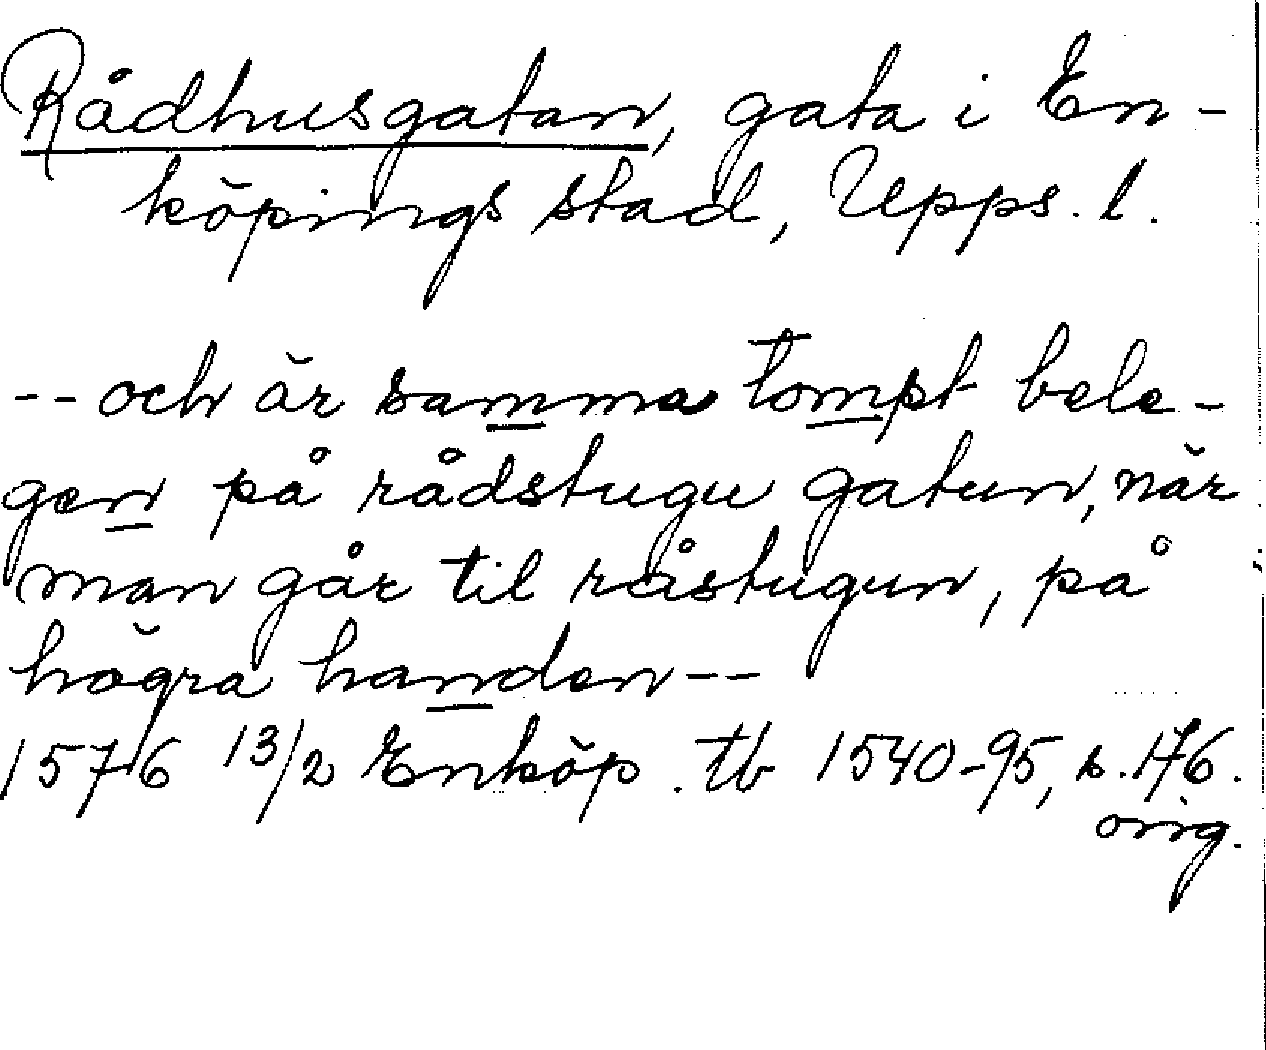 Rådhusgatan, gata i En-
köpings stad, Upps. l.
-- och är samma tompt bele-
gen på rådstugu gatun, når
man går til råstugun, på
högra handen --
1576 13/2 Enköp. tb 1540-95, s. 176.
orig.